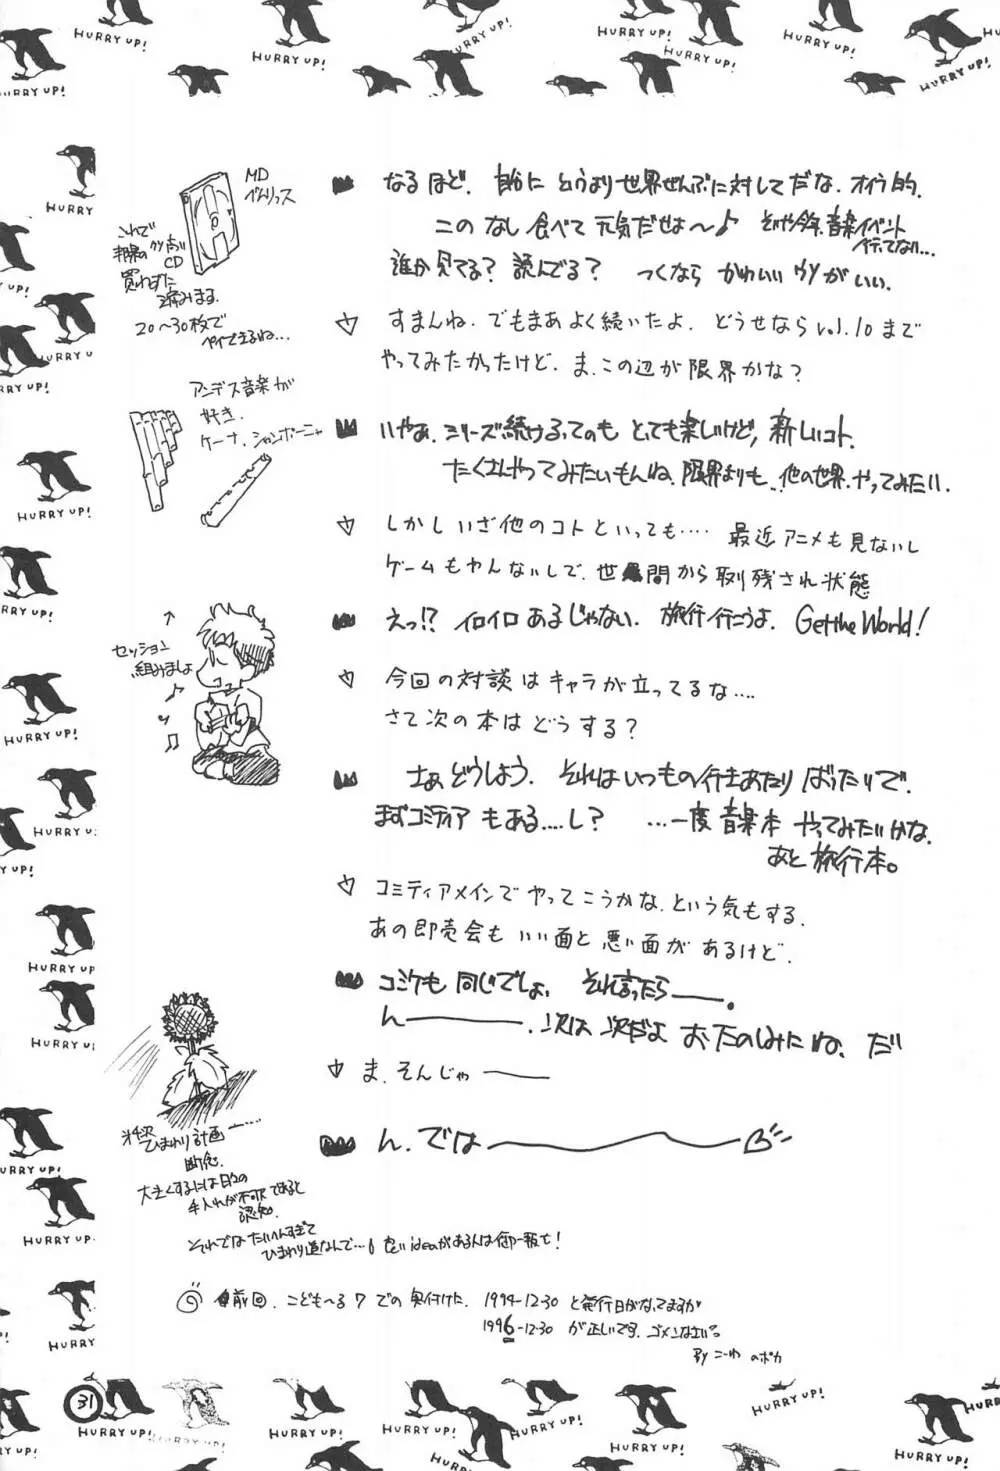 HURRY UP!
なるほど. 自分に というより世界ぜんぶに対してだな. オイラ的.
このなし食べて元気だせよ〜♪ そいや今年、音楽イベント
行ってない…
誰か見てる? 読んでる? つくなら かわいいウソがいい.
すまんね. でもまあよく続いたよ. どうせなら vol.10まで
やってみたかったけど. ま.この辺が限界かな?
いやぁ. シリーズ続けるってのも とっても楽しいけど, 新しいコト.
たくさんやってみたいもんね. 限界よりも. 他の世界. やってみたい.
しかしいざ他のコトといっても…. 最近アニメも見ないし
ゲームもやんないしで. 世間から取り残され状態
えっ!? イロイロあるじゃない. 旅行行こうよ. Get the World!
今回の対談はキャラが立ってるな….
さて次の本はどうする?
さぁどうしよう. それはいつもの行きあたりばったりで.
まずコミティアもある….し? …一度音楽本 やってみたいかな.
あと旅行本。
コミティアメインでやってこうかな.という気もする.
あの即売会もいい面と悪い面があるけど.
コミケも同じでしょ. それ言ったら――.
ん―――. 次は次だよ おたのしみにね. だ
ま.そんじゃ――
ん.では――――
MD
べんりっス
これで
CD
買わずに
済みまする.
20〜30枚で
ペイできるね…
アンデス音楽が
好き.
ケーナ. シャンポーニャ
セッション
組みましょ
ひまわり計画―…
断念.
大きくするには日々の
手入れが不可欠であると
認知.
それではたいへんすぎて
ideaがある人は御一報も!
前回. こども〜る7での奥付けた. 1994-12-30 と発行日がなってますが
1996-12-30 が正しいです. ゴメンなさい。
By こーわ のポカ
31
HURRY UP!